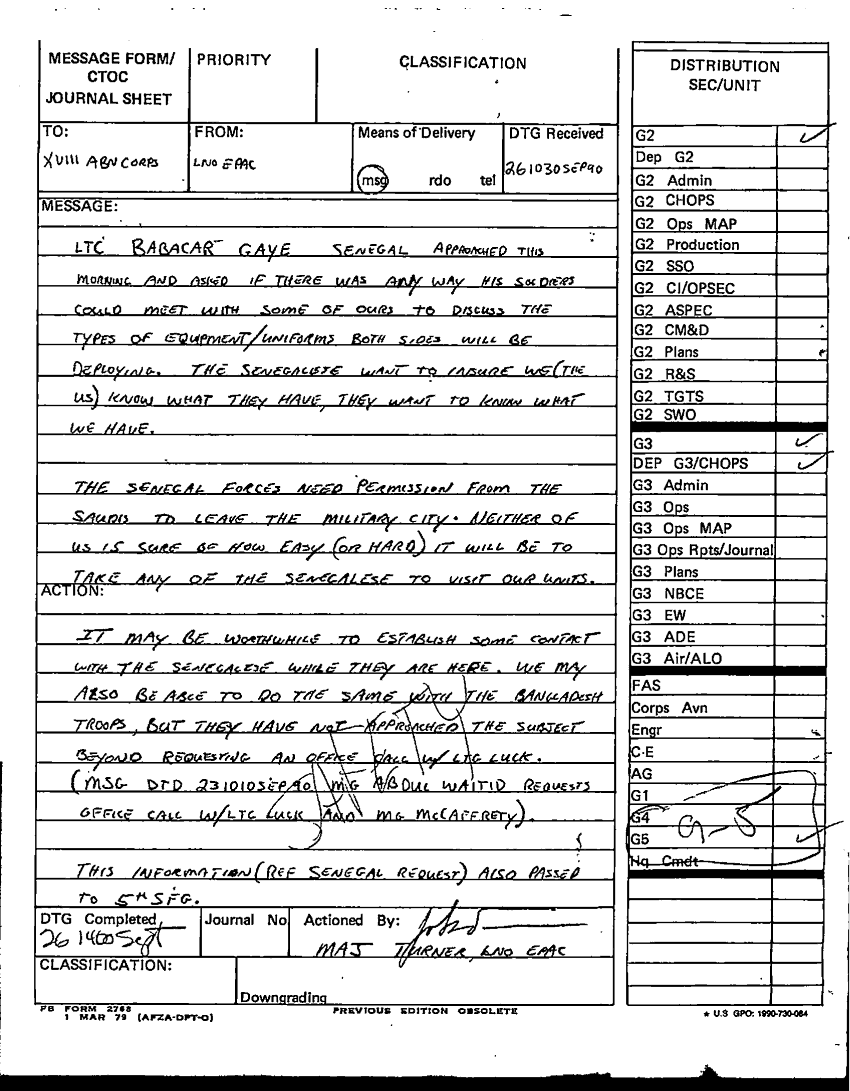 MESSAGE FORM/
CTOC
JOURNAL SHEET
PRIORITY
CLASSIFICATION
TO:
XVIII ABN CORPS
FROM:
LNO EPAC
Means of Delivery
msg rdo tel
DTG Received
261030SEP90
MESSAGE:
LTC BABACAR GAYE SENEGAL APPROACHED THIS
MORNING AND ASKED IF THERE WAS ANY WAY HIS SOLDIERS
COULD MEET WITH SOME OF OURS TO DISCUSS THE
TYPES OF EQUIPMENT/UNIFORMS BOTH SIDES WILL BE
DEPLOYING. THE SENEGALESE WANT TO INSURE WE (THE
US) KNOW WHAT THEY HAVE, THEY WANT TO KNOW WHAT
WE HAVE.
THE SENEGAL FORCES NEED PERMISSION FROM THE
SAUDIS TO LEAVE THE MILITARY CITY. NEITHER OF
US IS SURE OF HOW EASY (OR HARD) IT WILL BE TO
TAKE ANY OF THE SENEGALESE TO VISIT OUR UNITS.
ACTION:
IT MAY BE WORTHWHILE TO ESTABLISH SOME CONTACT
WITH THE SENEGALESE WHILE THEY ARE HERE. WE MAY
ALSO BE ABLE TO DO THE SAME WITH THE BANGLADESH
TROOPS, BUT THEY HAVE NOT APPROACHED THE SUBJECT
BEYOND REQUESTING AN OFFICE CALL W/ LTG LUCK.
(MSG DTD 231010SEP90 MG ABDUL WAITID REQUESTS
OFFICE CALL W/LTG LUCK AND MG McCAFFRETY).
THIS INFORMATION (REF SENEGAL REQUEST) ALSO PASSED
TO 5TH SFG.
DTG Completed
26 1400 Sept
Journal No
Actioned By:
MAJ TURNER, LNO EPAC
CLASSIFICATION:
Downgrading
FB FORM 2768
1 MAR 79 (AFZA-DPT-O)
PREVIOUS EDITION OBSOLETE
DISTRIBUTION
SEC/UNIT
G2
Dep G2
G2 Admin
G2 CHOPS
G2 Ops MAP
G2 Production
G2 SSO
G2 CI/OPSEC
G2 ASPEC
G2 CM&D
G2 Plans
G2 R&S
G2 TGTS
G2 SWO
G3
DEP G3/CHOPS
G3 Admin
G3 Ops
G3 Ops MAP
G3 Ops Rpts/Journal
G3 Plans
G3 NBCE
G3 EW
G3 ADE
G3 Air/ALO
FAS
Corps Avn
Engr
C-E
AG
G1
G4
G5
G-5
Hq Cmdt
★ U.S GPO: 1990-730-084